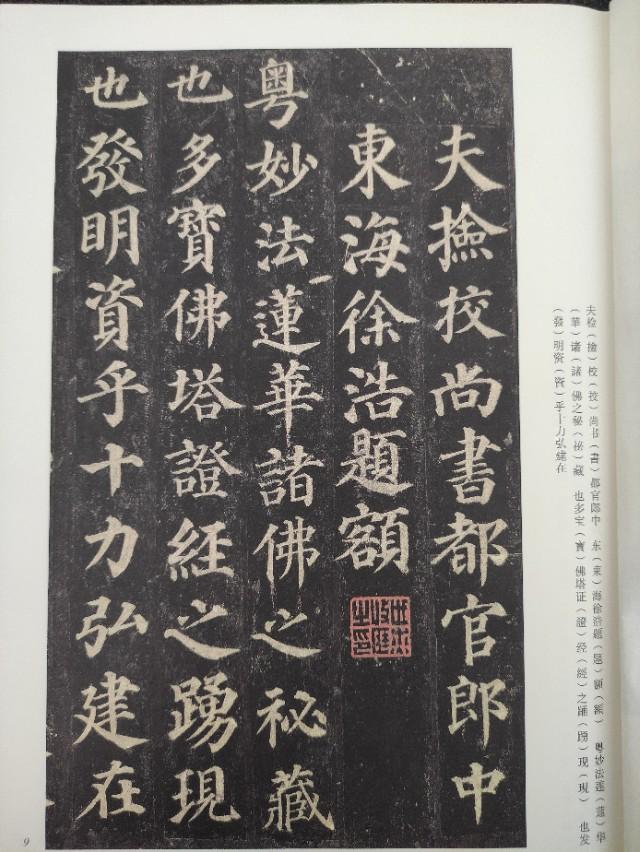 夫撿挍尚書都官郎中
東海徐浩題額
粵妙法蓮華諸佛之祕藏
也多寶佛塔證經之踴現
也發明資乎十力弘建在
夫检（撿）校（挍）尚书（書）都官郎中　东（東）海徐浩题（題）额（額）　粤妙法莲（蓮）华
（華）诸（諸）佛之秘（祕）藏　也多宝（寶）佛塔证（證）经（經）之踊（踴）现（現）　也发
（發）明资（資）乎十力弘建在
9